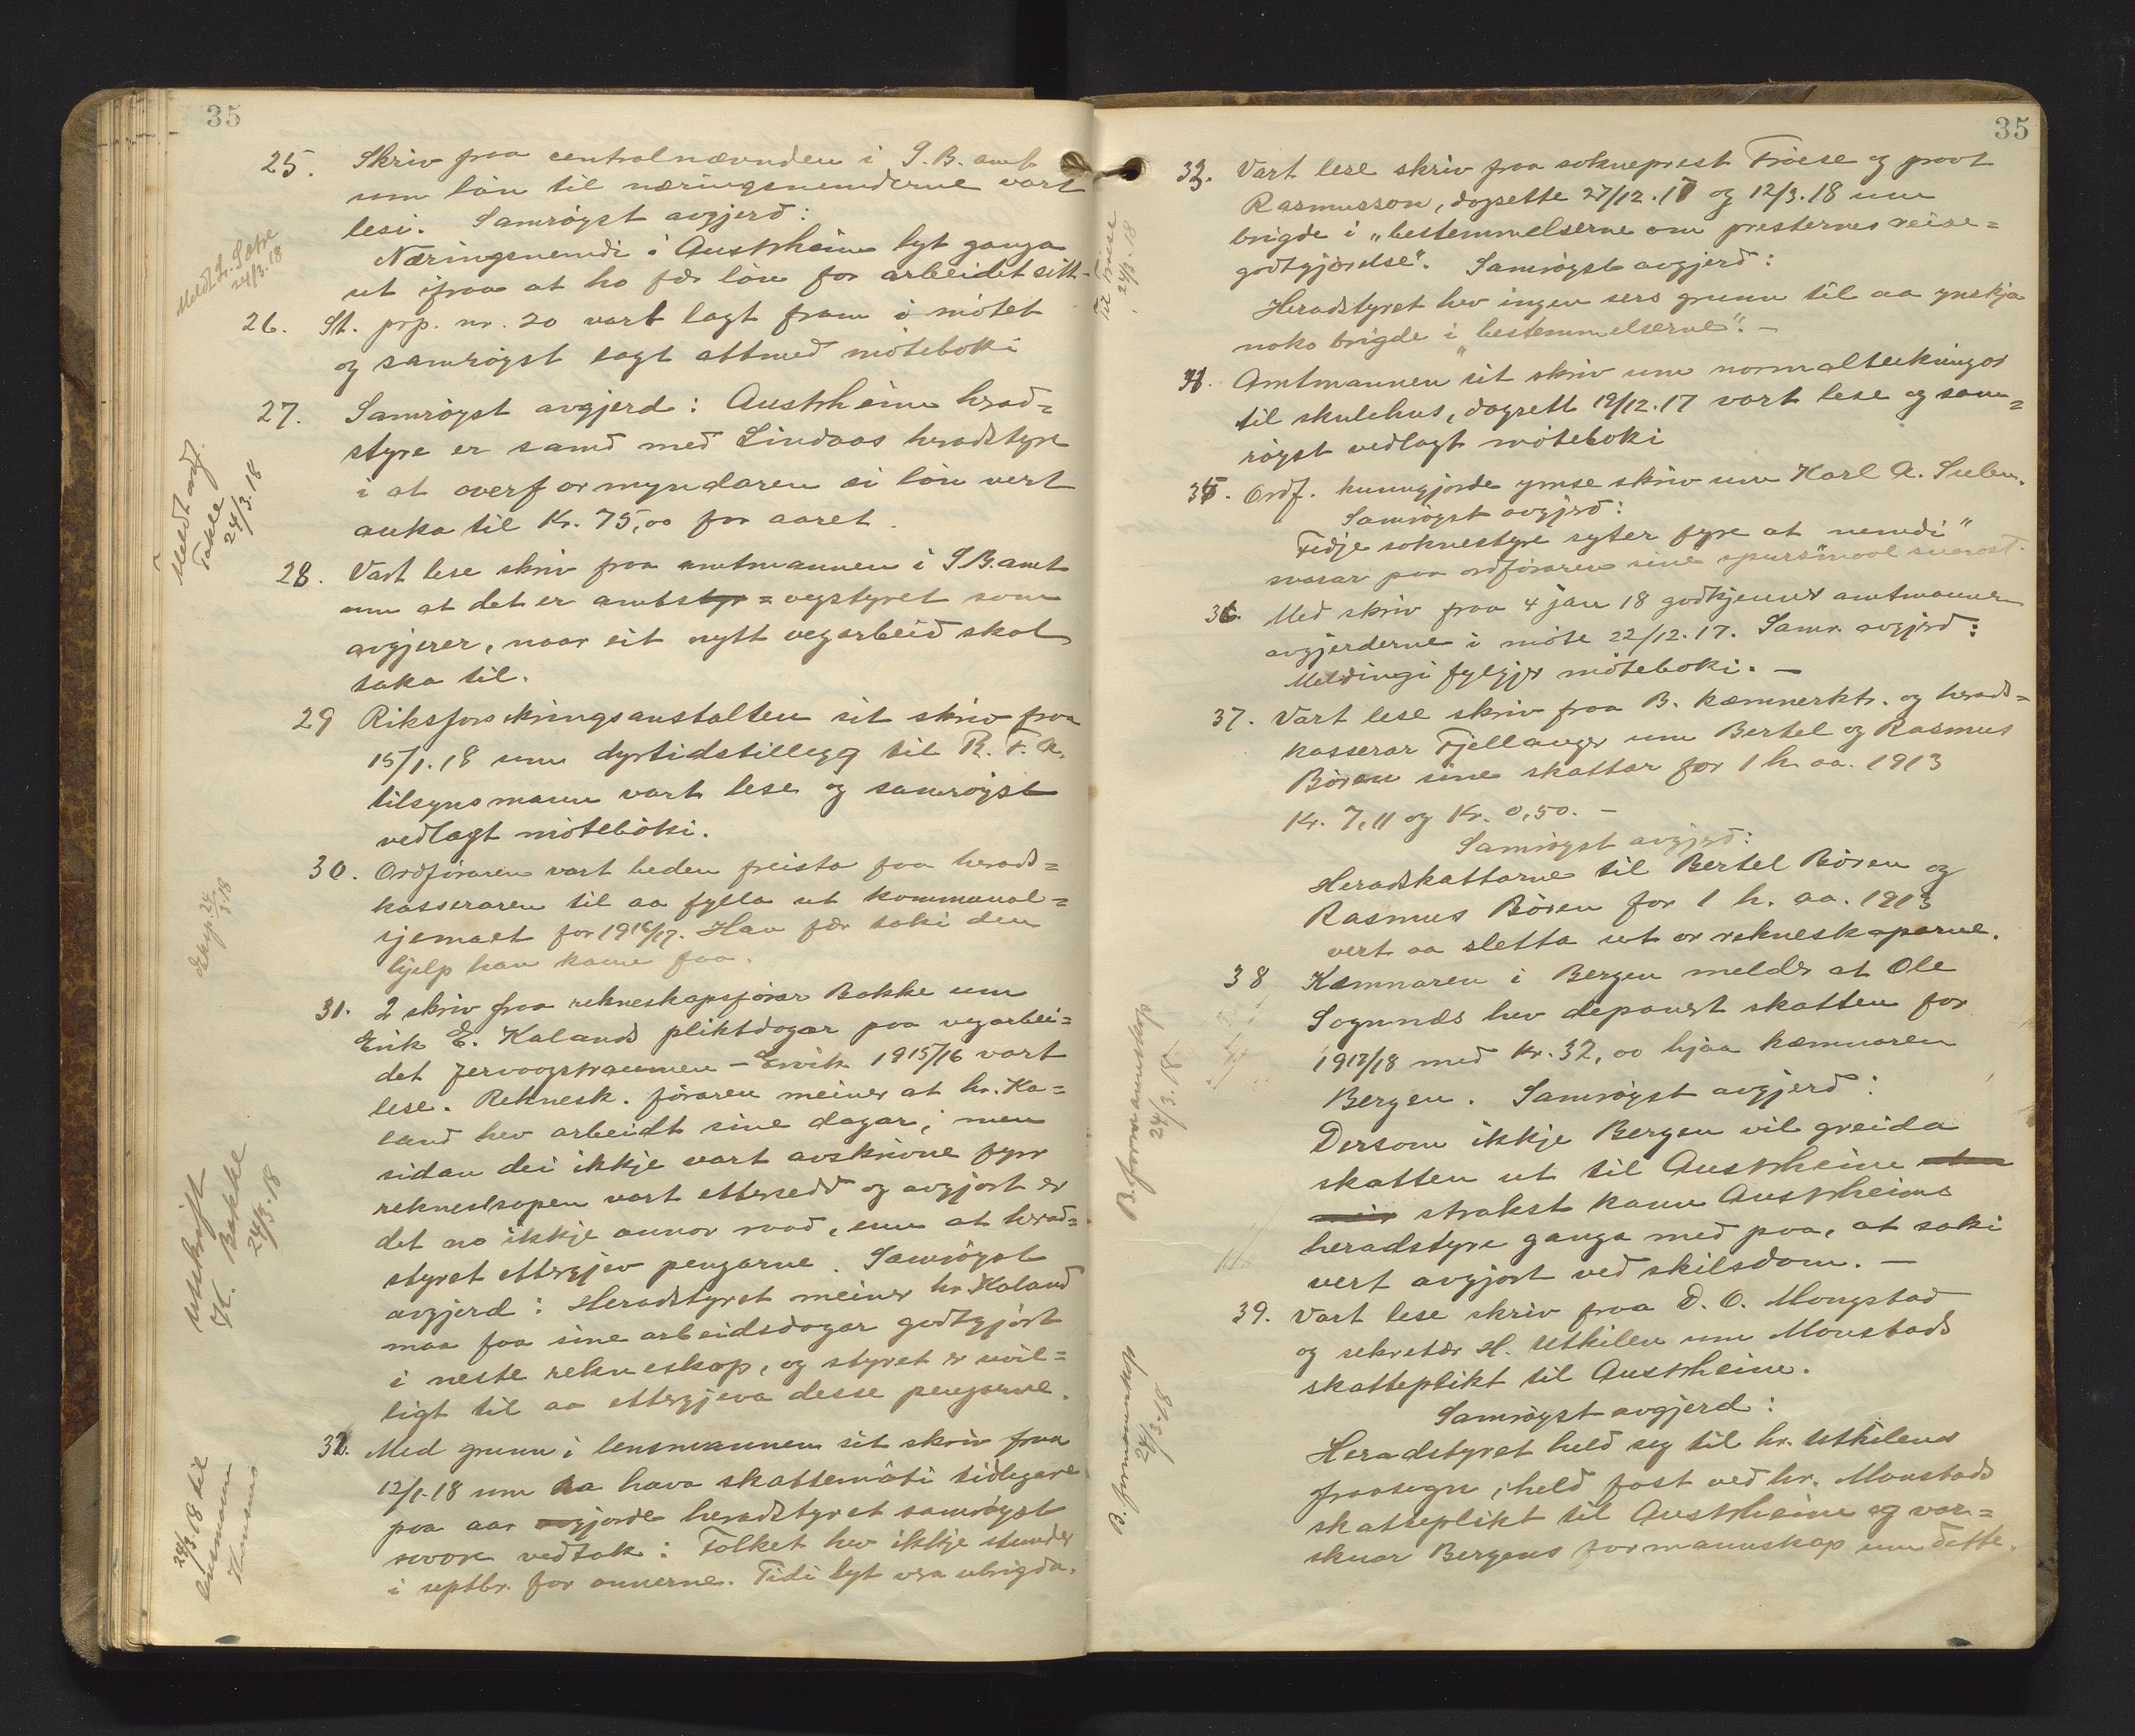 35
25. Skriv fraa centralnævnden i S. B. amt
um løn til næringsnemderne vart
lesi. Samrøyst avgjerd:
Næringsnemdi i Austrheim lyt ganga
ut ifraa at ho fær løn for arbeidet sitt.
Meldt L. Sætre
24/3.18
26. St. prp. nr. 20 vart lagt fram i møtet
og samrøyst lagt attmed møteboki
27. Samrøyst avgjerd: Austrheim herad=
styre er samd med Lindaas heradstyre
i at overformyndaren si løn vert
auka til Kr. 75,00 for aaret.
Meldt ordf.
Takle
24/3.18
28. Vart lese skriv fraa amtmannen i S.B. amt
um at det er amtstyr = vegstyret som
avgjerer, naar eit nytt vegarbeid skal
taka til.
29 Riksforsikringsanstalten sit skriv fraa
15/1.18 um dyrtidstillegg til R. F. A.
tilsynsmann vart lese og samrøyst
vedlagt møteboki.
30. Ordføraren vart beden freista faa herads=
kasseraren til aa fylla ut kommunal=
sjemaet for 1916/17. Han fær taki den
hjelp han kann faa.
31. 2 skriv fraa rekneskapsførar Bakke um
Erik E. Kalands pliktdagar paa vegarbei=
det Fervaagstraumen - Ervik 1915/16 vart
lese. Reknesk. føraren meiner at hr. Ka=
land hev arbeidt sine dagar; men
sidan dei ikkje vart avskrivne fyrr
rekneskapen vart ettersedd og avgjort er
det no ikkje annor raad, enn at herad=
styret ettergjev pengarne. Samrøyst
avgjerd: Heradstyret meiner hr. Kaland
maa faa sine arbeidsdagar godtgjort
i neste rekneskap, og styret er uvil=
ligt til aa ettergjeva desse pengarne.
Utskrift
H. Bakke
24/3.18
32. Med grunn i lensmannen sit skriv fraa
12/1.18 um aa hava skattemøti tidlegare
paa aar gjorde heradstyret samrøyst
vedtak: Folket hev ikkje stunder
i septbr. for onnerne. Tidi lyt vera ubrigda.
24/3.18 til
lensmann
35
33. Vart lese skriv fraa sokneprest Frøese og provt
Rasmusson, dagsette 27/12.17 og 12/3.18 um
brigde i „bestemmelserne om presternes reise=
godtgjørelse“. Samrøyst avgjerd:
Heradstyret hev ingen sers grunn til aa ynskja
noko brigde i „bestemmelserne“. —
Til Frøese
24/3.18
34. Amtmannen sit skriv um normalteikningar
til skulehus, dagsett 19/12.17 vart lese og sam=
røyst vedlagt møteboki
35. Ordf. kunngjorde ymse skriv um Karl A.
Samrøyst avgjerd:
Fedje soknestyre syter fyre at nemdi
svarar paa ordføraren sine spursmaal snarast.
36. Med skriv fraa 4 jan 18 godkjenner amtmannen
avgjerderne i møte 22/12.17. Samr. avgjerd:
Meldingi fylgjer møteboki. —
37. Vart lese skriv fraa B. kæmnerktr. og herads=
kasserar Fjellanger um Bertel og Rasmus
Børen sine skattar for 1 h. aa. 1913
Kr. 7,11 og Kr. 0,50. —
Samrøyst avgjerd:
Heradskattarne til Bertel Børen og
Rasmus Børen for 1 h. aa. 1913
vert aa sletta ut or rekneskaparne.
38 Kæmnaren i Bergen melder at Ole
Sognnes hev deponert skatten for
1917/18 med kr. 32,00 hjaa kæmnaren
Bergen. Samrøyst avgjerd:
Dersom ikkje Bergen vil greida
skatten ut til Austrheim utan
meir strakst kann Austrheims
heradstyre ganga med paa, at saki
vert avgjort ved skilsdom. —
B. formannskap
24/3.18
39. Vart lese skriv fraa D. O. Mongstad
og sekretær H. Utkilen um Monstads
skatteplikt til Austrheim.
Samrøyst avgjerd:
Heradstyret held seg til hr. Utkilens
fraasegn, held fast ved hr. Monstads
skatteplikt til Austrheim og var=
skuar Bergens formannskap um dette.
B. formannskap
24/3.18